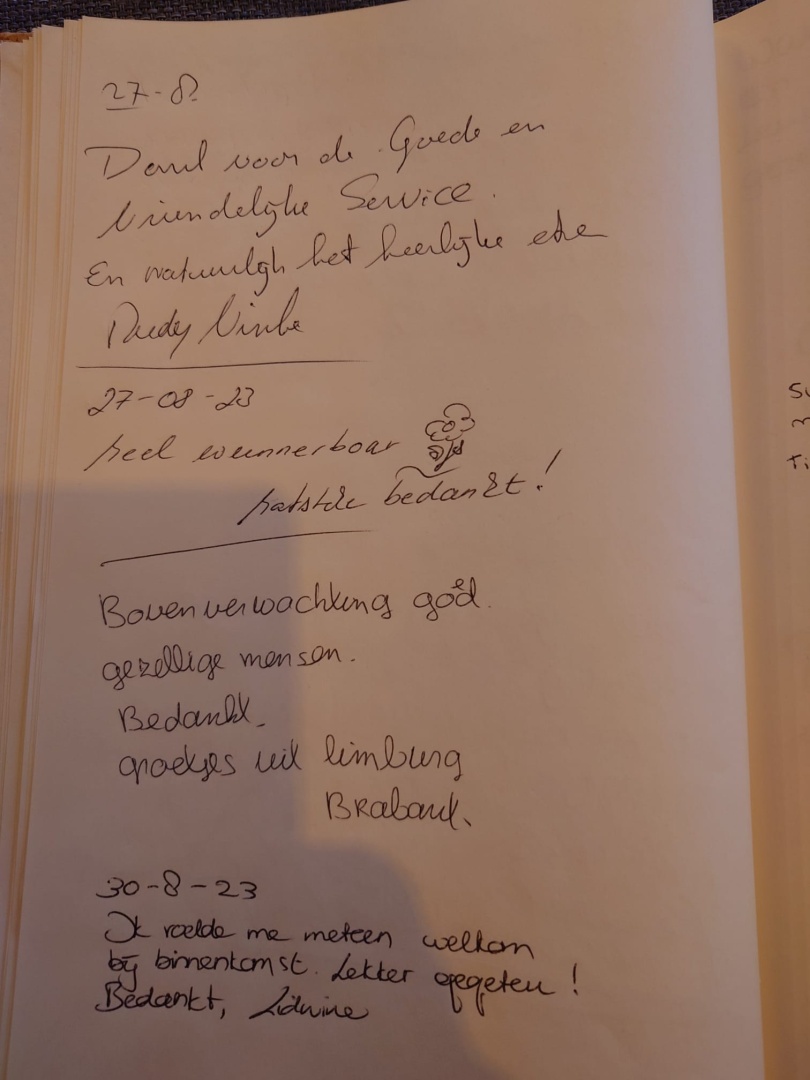 27-8
Dank voor de Goede en
Vriendelijke Service.
En natuurlijk het heerlijke ete
Rudy Vinke
27-08-23
heel wunnerboar
hatstikke bedankt!
Boven verwachting goed.
gezellige mensen.
Bedankt.
groetjes uit limburg
Brabant.
30-8-23
Ik voelde me meteen welkom
bij binnenkomst. Lekker gegeten!
Bedankt, Lidwine
Ti